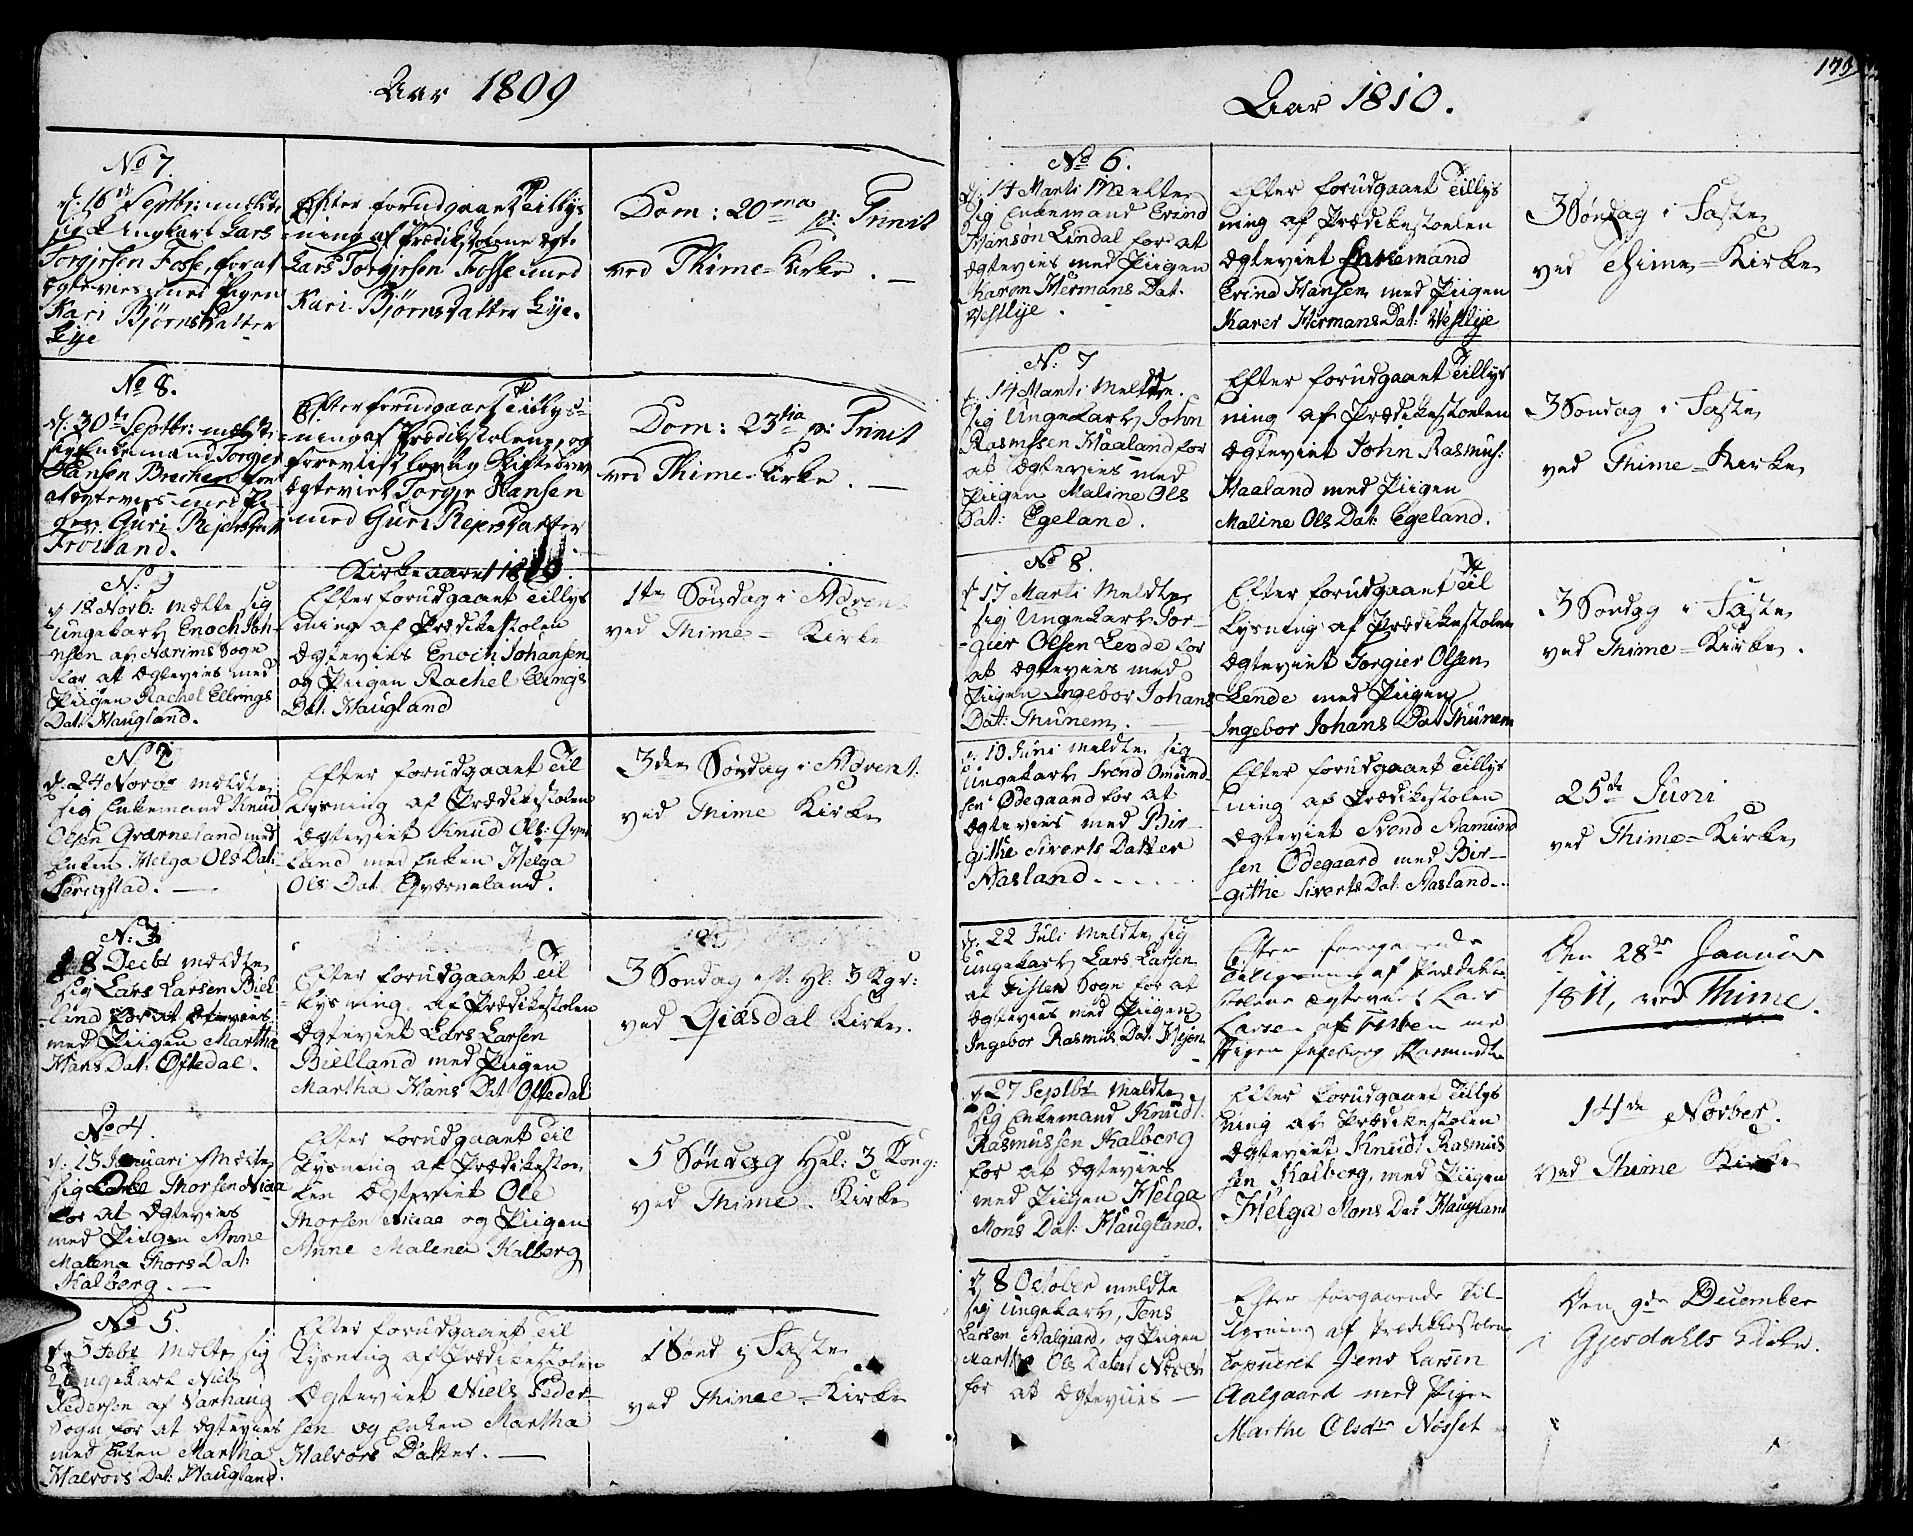 Aar 1809
No 7.
d: 16de Septbr: meldte
sig Ungkarl Lars
Torgiersen Fosse, for at
Ægtevies med Pigen
Kari Bjørns Datter
Lye
Efter forudgaaet Tillys
ning af Prædikstolene Ægt.
Lars Torgjersen Fosse med
Kari Bjørnsdatter Lye.
Dom: 20ma p: Trinit
ved Thime-Kirke.
No 8.
d: 30te Septbr: meldte
sig Enkemand Torgier
Hansen Brechen for
at Ægtevies med Pi-
gen Guri
Froiland.
Efter forudgaaet Tillys-
ning af Prædikstolene, og
foreviist lovlig Skiftebrev
Ægteviet Torgjr Hansen
med Guri
Dom: 23tia p: Trinit
ved Thime-Kirke.
Kirkeaaret 1810
N: 1
d 18 Novb: mælte sig
Ungekarl Enoch Joh-
nsen af Nærims Sogn
for at Ægtevies med
Piigen Rachel Ellings
Dat: Haugland.
Efter forudgaaet Tillys
ning af Prædikestolen
Ægtevies Enoch Johansen
og Piigen Rachel Elings
Dat: Haugland
1te Søndag i Adven
ved Thime-Kirke
N: 2
d: 24 Novbr mældte
sig Enkemand Knud
Olsen Qværneland med
Enken Helga Ols Dat:
Serigstad.
Efter forudgaaet Til
Lysning af Prædikestolen
Ægteviet Knud Ols: Qver
land med Enken Helga
Ols Dat Qværneland.
3den Søndag i Advent.
ved Thime Kirke
N: 3
8 Decbr mældte
sig Lars Larsen Biel
land for at Ægtevies
med Piigen Martha
Hans Dat: Oftedal.
Efter forudgaaet Til
Lysning af Prædikestolen
Ægteviet Lars Larsen
Bielland med Piigen
Martha Hans Dat Oftedal
3 Søndag eft: Hl: 3 Kgr:
ved Giæsdal Kirke.
No 4.
d: 13 Januari Mælte
sig Ole Thorsen Niaa
for at Ægtevies
med Piigen Anne
Malena Thors Dat:
Kalberg.
Efter forudgaaet Til
Lysning af Prædikesto
len Ægteviet Ole
Thorsen Niaae og Piigen
Anne Malene Kalberg
5 Søndag Hel: 3 Kong:
ved Thime Kirke
No 5.
d. 3 Febr Mælte sig
Ungekarl Niels
Pedersen af Varhaug
Sogn for at Ægtevies
med Enken Martha
Halvors Dat: Haugland.
Efter forudgaaet Til
Lysning af Prædikestolen
Ægteviet Niels Peder-
sen og Enken Martha
Halvors Datter.
1 Sønd i Faste
ved Thime-Kirke
Aar 1810.
No 6.
d. 14 Marti Melte
sig Enkemand Erind
Hanson Lindal for at
Ægtevies med Piigen
Karen Hermans Dat.
Vestlye.
Efter forudgaaet Tillys
ning af Prædikestolen
Ægteviet Enkemand
Erind Hansen med Piigen
Karer Hermans Dat: Vestlye
3 Søndag i Faste
ved Thime-Kirke
N: 7
d. 14 Marti Meldte
sig Ungekarl John
Rasmssen Haaland for
at Ægtevies med
Piigen Maline Ols
Dat: Egeland.
Efter forudgaaet Tillys
ning af Prædikestolen
Ægteviet John Rasmus:
Haaland med Piigen
Maline Ols Dat: Egeland.
3 Søndag i Faste
ved Thime-Kirke
No 8.
d 17 Marti Meldte
sig Ungekarl Tor-
gier Olsen Lende for
at Ægtevies med
Piigen Ingebor Johans
Dat: Thunem.
Efter forudgaaet Til
Lysning af Prædikestolen
Ægteviet Torgier Olsen
Lende med Piigen
Ingebor Johans Dat Thunem
3 Søndag i Faste
ved Thime-Kirke.
d. 10 Juni Meldte sig
Ungekarl Svend Omund-
sen Ødegaard for at
Ægtevies med Bir-
githe Siverts Datter
Aasland
Efter forudgaaet Tillys
ning af Prædikestolen
Ægteviet Svend Aamund
sen Ødegaard med Bir-
githe Siverts Dat: Aasland.
25de Juni
ved Thime-Kirke
d. 22 Juli Meldte sig
Ungekarl Lars Larsen
af Sogn for at
Ægtevies med Piigen
Ingebor Rasmus Dat:
Efter foregaaende
Tillysning af Prædike
stolen Ægteviet Lars
Larsen af med
Pigen Ingeborg Rasmusdtr
Den 28de Januar
1811, ved Thime.
d 27 Septbr Meldte
sig Enkemand Knudt
Rasmussen Kalberg
for at Ægtevies
med Piigen Helga
Mons Dat: Haugland.
Efter forudgaaet Tillys
ning af Prædikestolen
Ægteviet Knudt Rasmus
sen Kalberg, med Piigen
Helga Mons Dat Haugland
14de Novber.
ved Thime Kirke
d 8 October meldte
sig Ungekarl, Jens
Larsen Aalgaard, og Piigen
Marthe Ols Dater
for at Ægtevies
Efter forgaaende Til-
lysning af Prædikestolen
Copuleret Jens Larsen
Aalgaard med Pigen
Marthe Olsdtr Nosset
Den 9de December
i Gjesdahls Kirke.